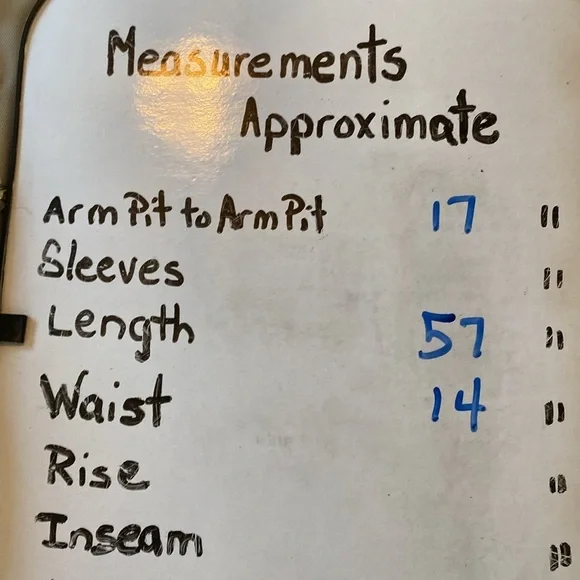 Measurements
Approximate
Arm Pit to Arm Pit 17 "
Sleeves "
Length 57 "
Waist 14 "
Rise "
Inseam "